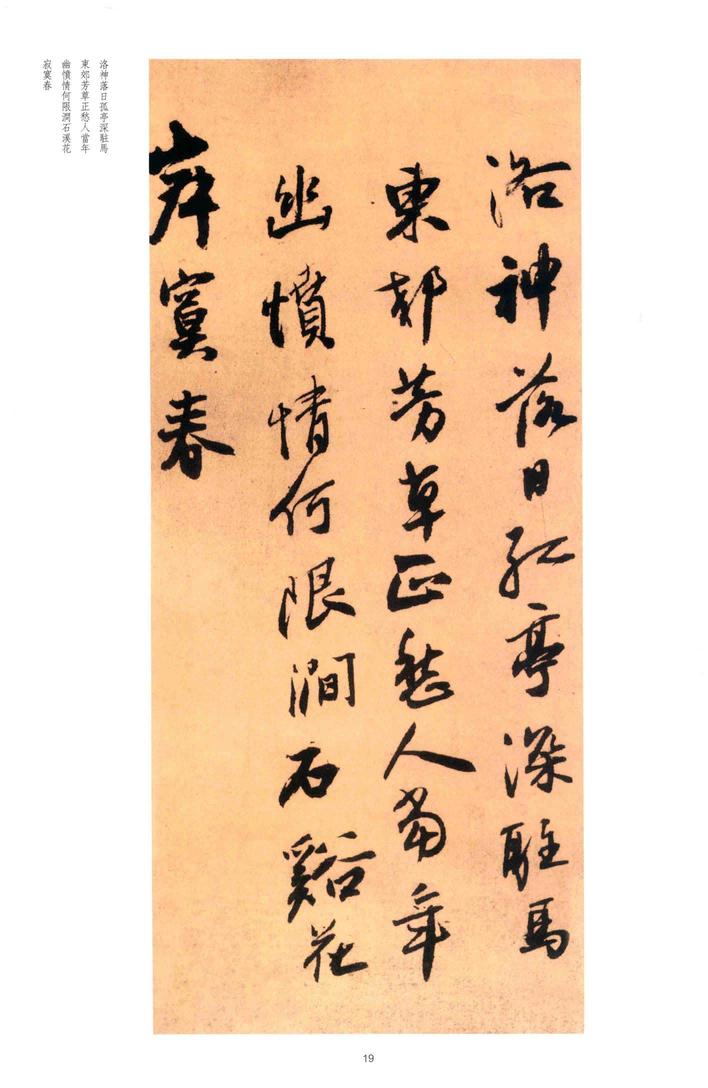 洛神落日孤亭深駐馬
東郊芳草正愁人當年
幽憤情何限澗石谿花
寂寞春
洛神落日孤亭深駐馬
東郊芳草正愁人當年
幽憤情何限澗石溪花
寂寞春
19